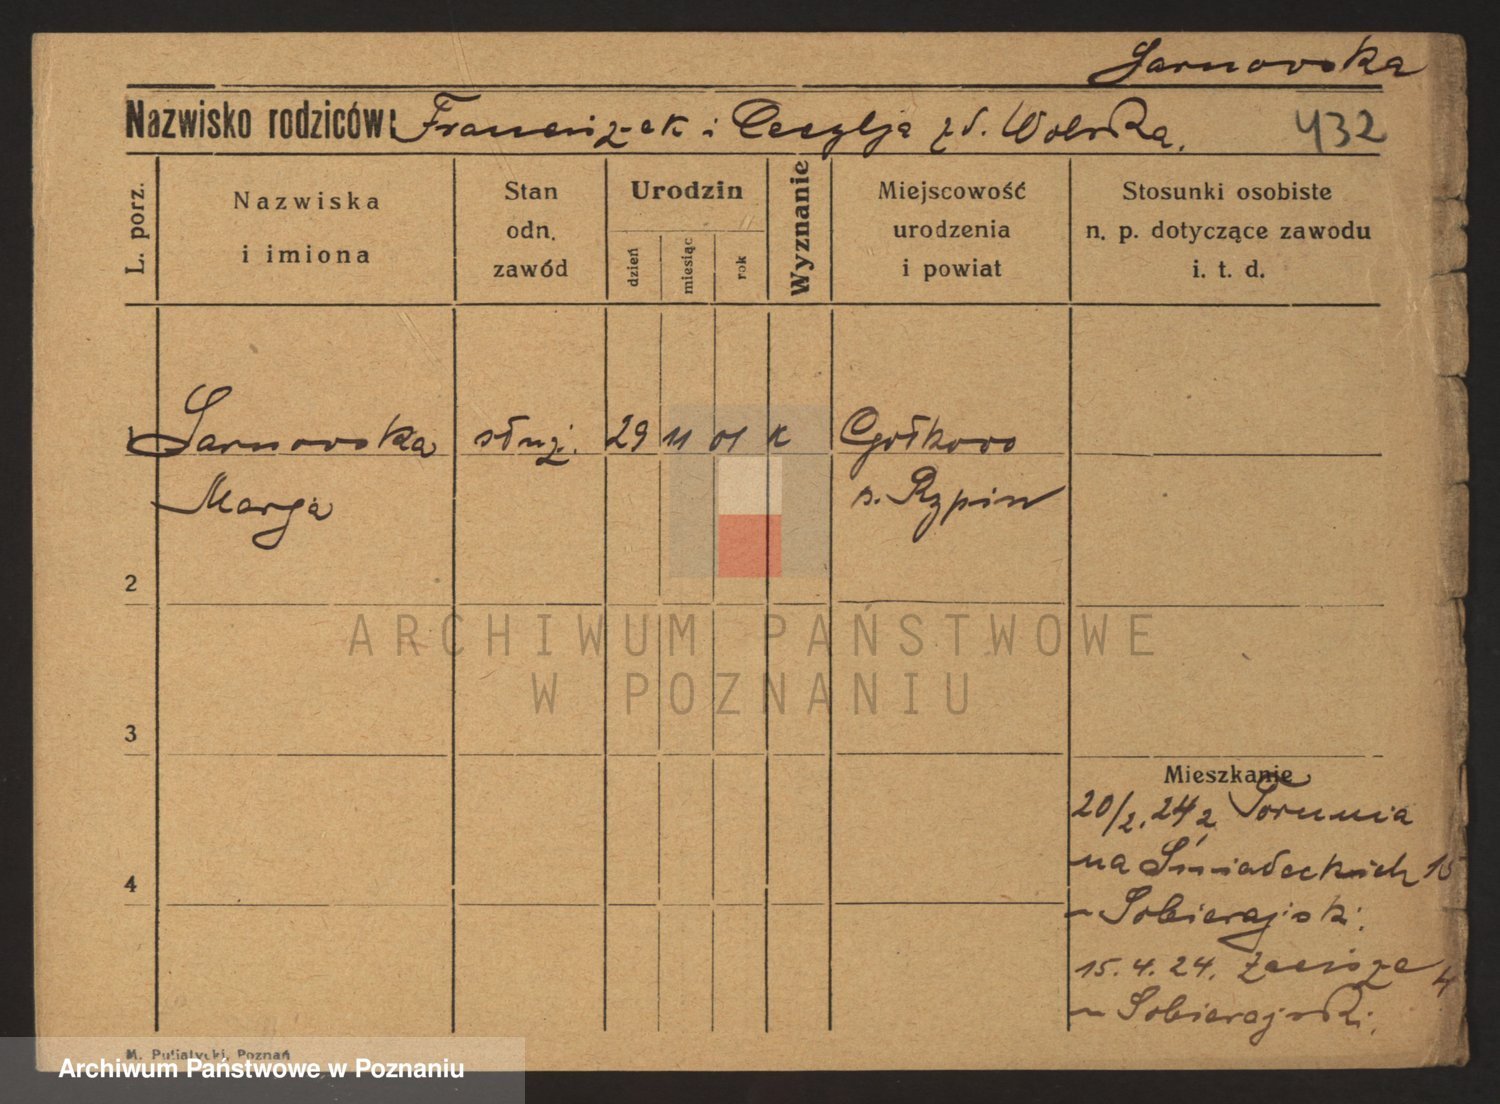 Sarnowska
Nazwisko rodziców: Franciszek i Cecylja zd. Wolska.
432
L. porz.
Nazwiska
i imiona
Stan
odn.
zawód
Urodzin
dzień
miesiąc
rok
Wyznanie
Miejscowość
urodzenia
i powiat
Stosunki osobiste
n. p. dotyczące zawodu
i. t. d.
1 Sarnowska służ. 29 11 01 K
Marja p. Rypin
2
ARCHIWUM PAŃSTWOWE
W POZNANIU
3
Mieszkanie
20/2. 24 z Torunia
na Śniadeckich 15
Sobierajski.
4
15. 4. 24. Zacisze 4
Sobierajski.
M. Putiatycki, Poznań
Archiwum Państwowe w Poznaniu